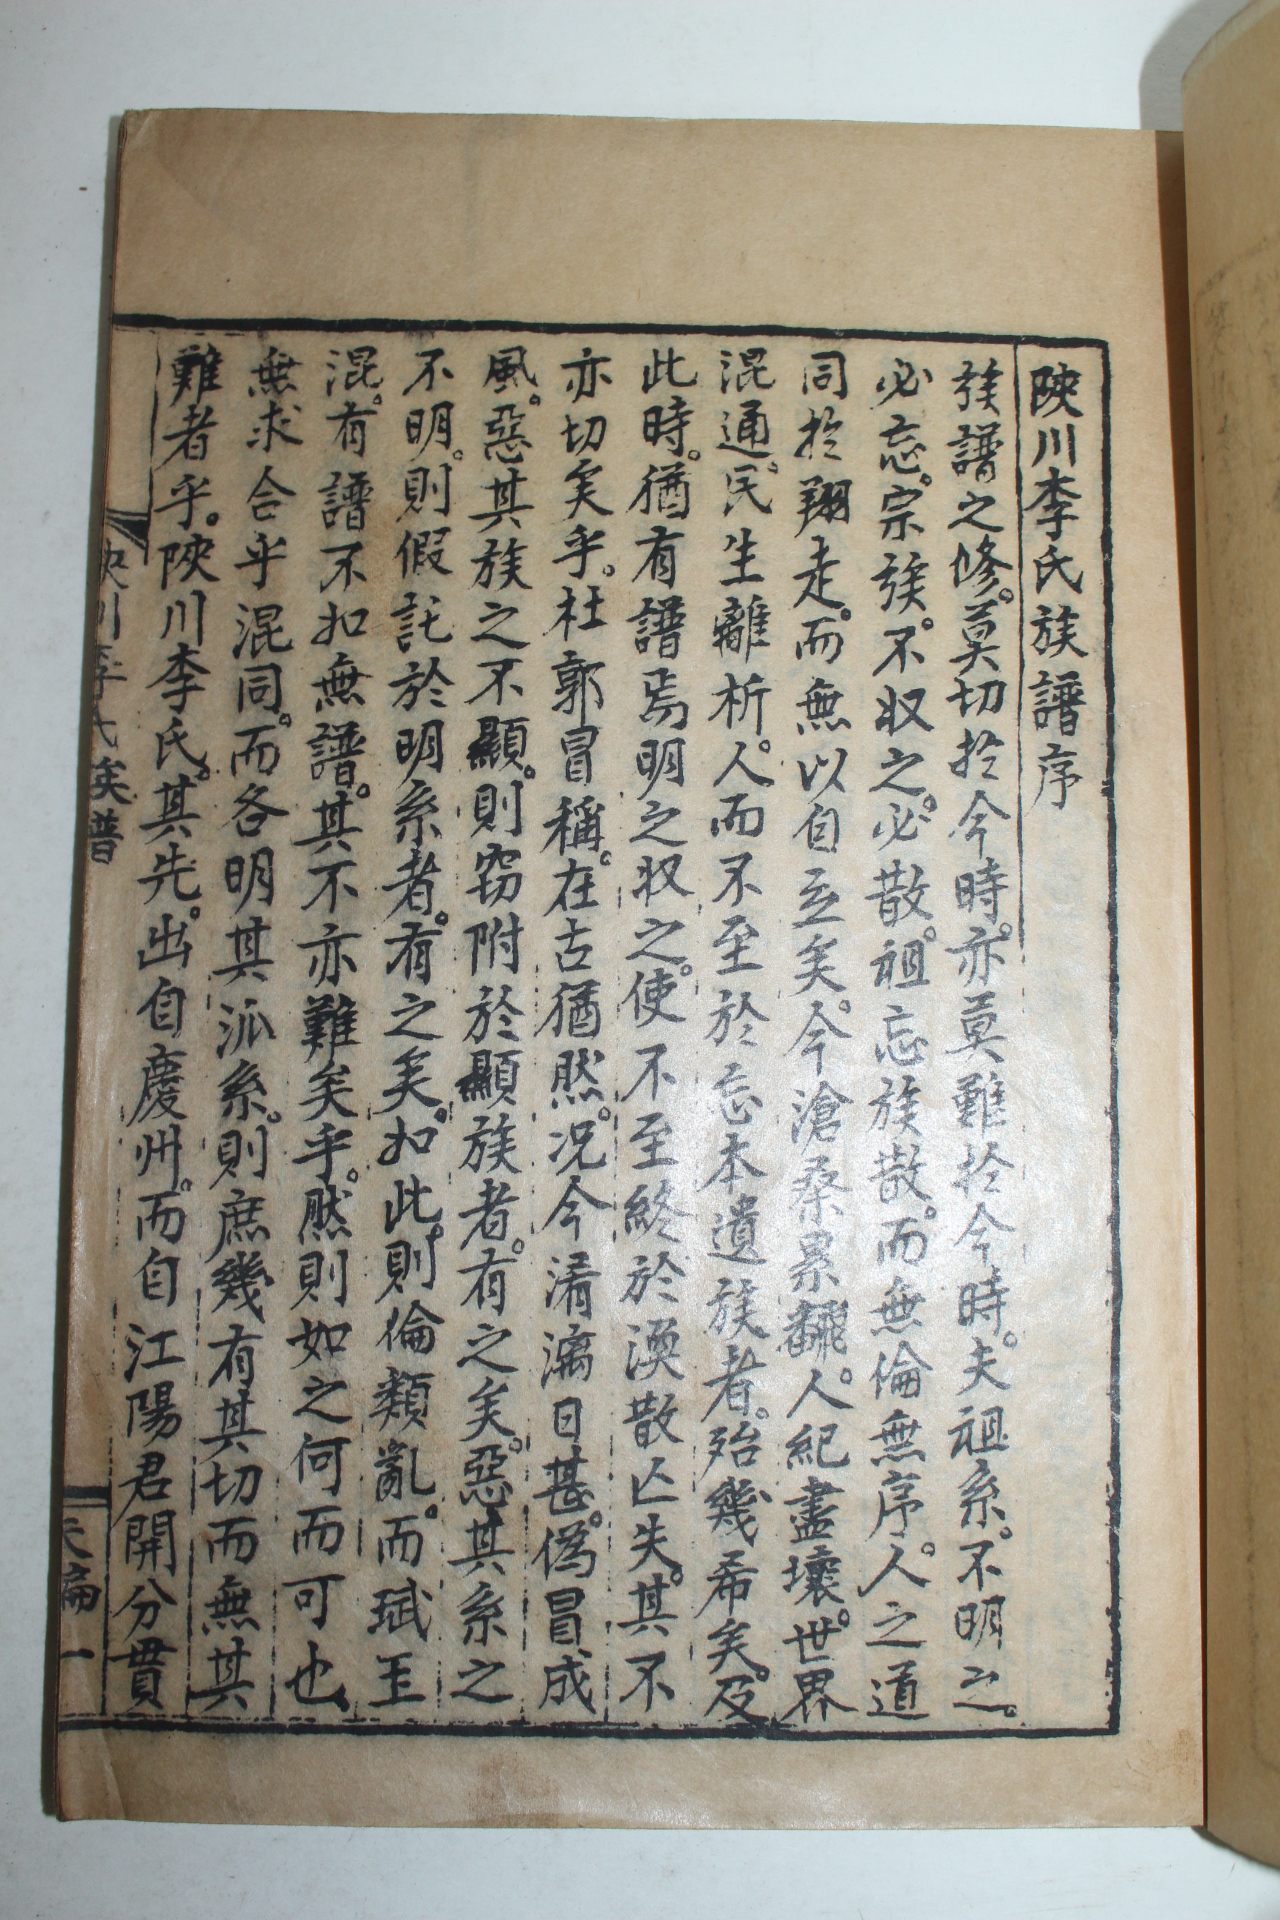 陜川李氏族譜序
族譜之修。莫切於今時。亦莫難於今時。夫祖系。不明之。
必忘。宗族。不収之。必散。祖忘族散。而無倫無序。人之道
同於翔走。而無以自立矣。今滄桑累飜。人紀盡壞。世界
混通。民生離析。人而不至於忘本遺族者。殆幾希矣。及
此時。猶有譜焉明之収之。使不至終於渙散亡失。其不
亦切矣乎。杜郭冒稱。在古猶然。况今淆漓日甚。僞冒成
風。惡其族之不顯。則窃附於顯族者。有之矣。惡其系之
不明。則假託於明系者。有之矣。如此。則倫類亂。而珷玉
混。有譜不如無譜。其不亦難矣乎。然則如之何而可也
無求合乎混同。而各明其派系。則庶幾有其切而無其
難者乎。陜川李氏。其先。出自慶州。而自江陽君開分貫
陜川李氏族譜
天編 一